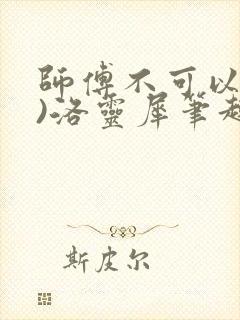 師傅不可以
)洛靈犀筆趣
斯皮尔